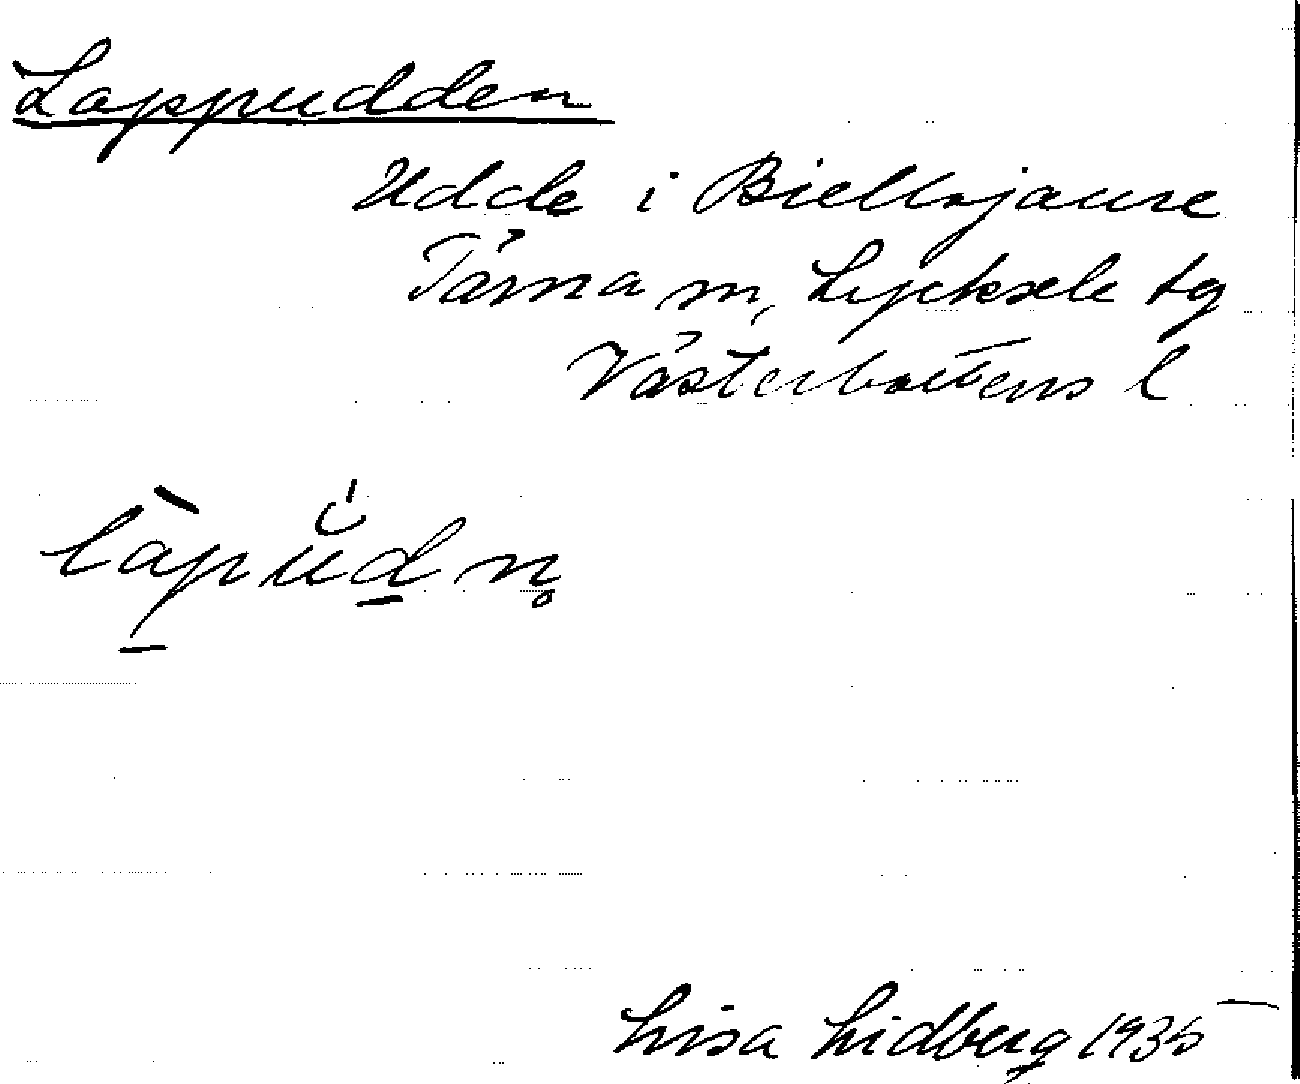 Lappudden
Udde i Biellojaure
Tärna sn, Lycksele tg
Västerbottens l
làpu̮̍d̠n̥
Lisa Lidberg 1935